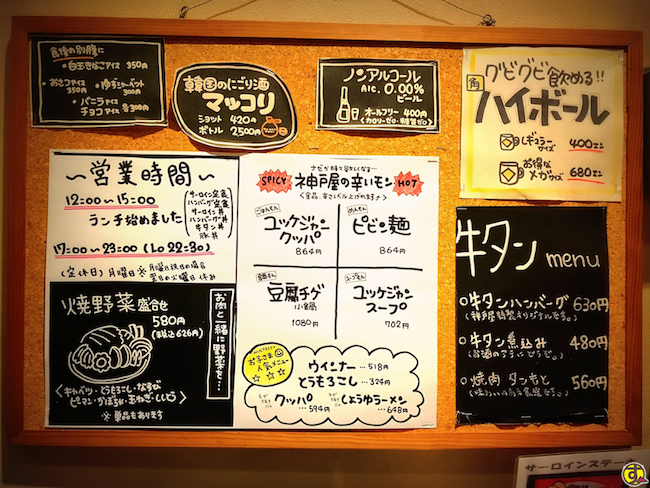 食後の別腹に
・白玉きなこアイス 350円
・おさつアイス 350円
・ゆずシャーベット 300円
・バニラアイス
チョコアイス 各300円
韓国のにごり酒
マッコリ
ショット 420円
ボトル 2500円
ノンアルコール
ALC. 0.00%
ビール
オールフリー 400円
(カロリーゼロ・糖質ゼロ)
グビグビ飲める!!
角
ハイボール
レギュラーサイズ 400円
お得なメガサイズ 680円
〜営業時間〜
12:00〜15:00
ランチ始めました
サーロイン定食
ハンバーグ定食
サーロイン丼
ハンバーグ丼
牛タン丼
豚丼
17:00〜23:00 (Lo 22:30)
(定休日)月曜日※月曜日祝日の場合
翌日の火曜日休み
SPICY 神戸屋の辛いモン HOT
ごはんもん
ユッケジャン
クッパ
864円
めんもん
ビビン麺
864円
豆腐チゲ
小鍋
1080円
スープもん
ユッケジャン
スープ
702円
お子さま
人気メニュー
ウインナー …518円
とうもろこし …324円
クッパ …594円
しょうゆラーメン …648円
焼野菜盛合せ
580円
(税込626円)
お肉と一緒に野菜を…
〈キャベツ・とうもろこし・なすび
ピーマン・かぼちゃ・玉ねぎ・ししとう〉
※単品もあります
牛タン menu
牛タンハンバーグ 630円
牛タン煮込み 480円
焼肉 タンもと 560円
サーロインステーキ